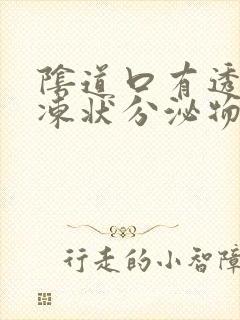 陰道口有透
凍狀分泌物
行走的小智障